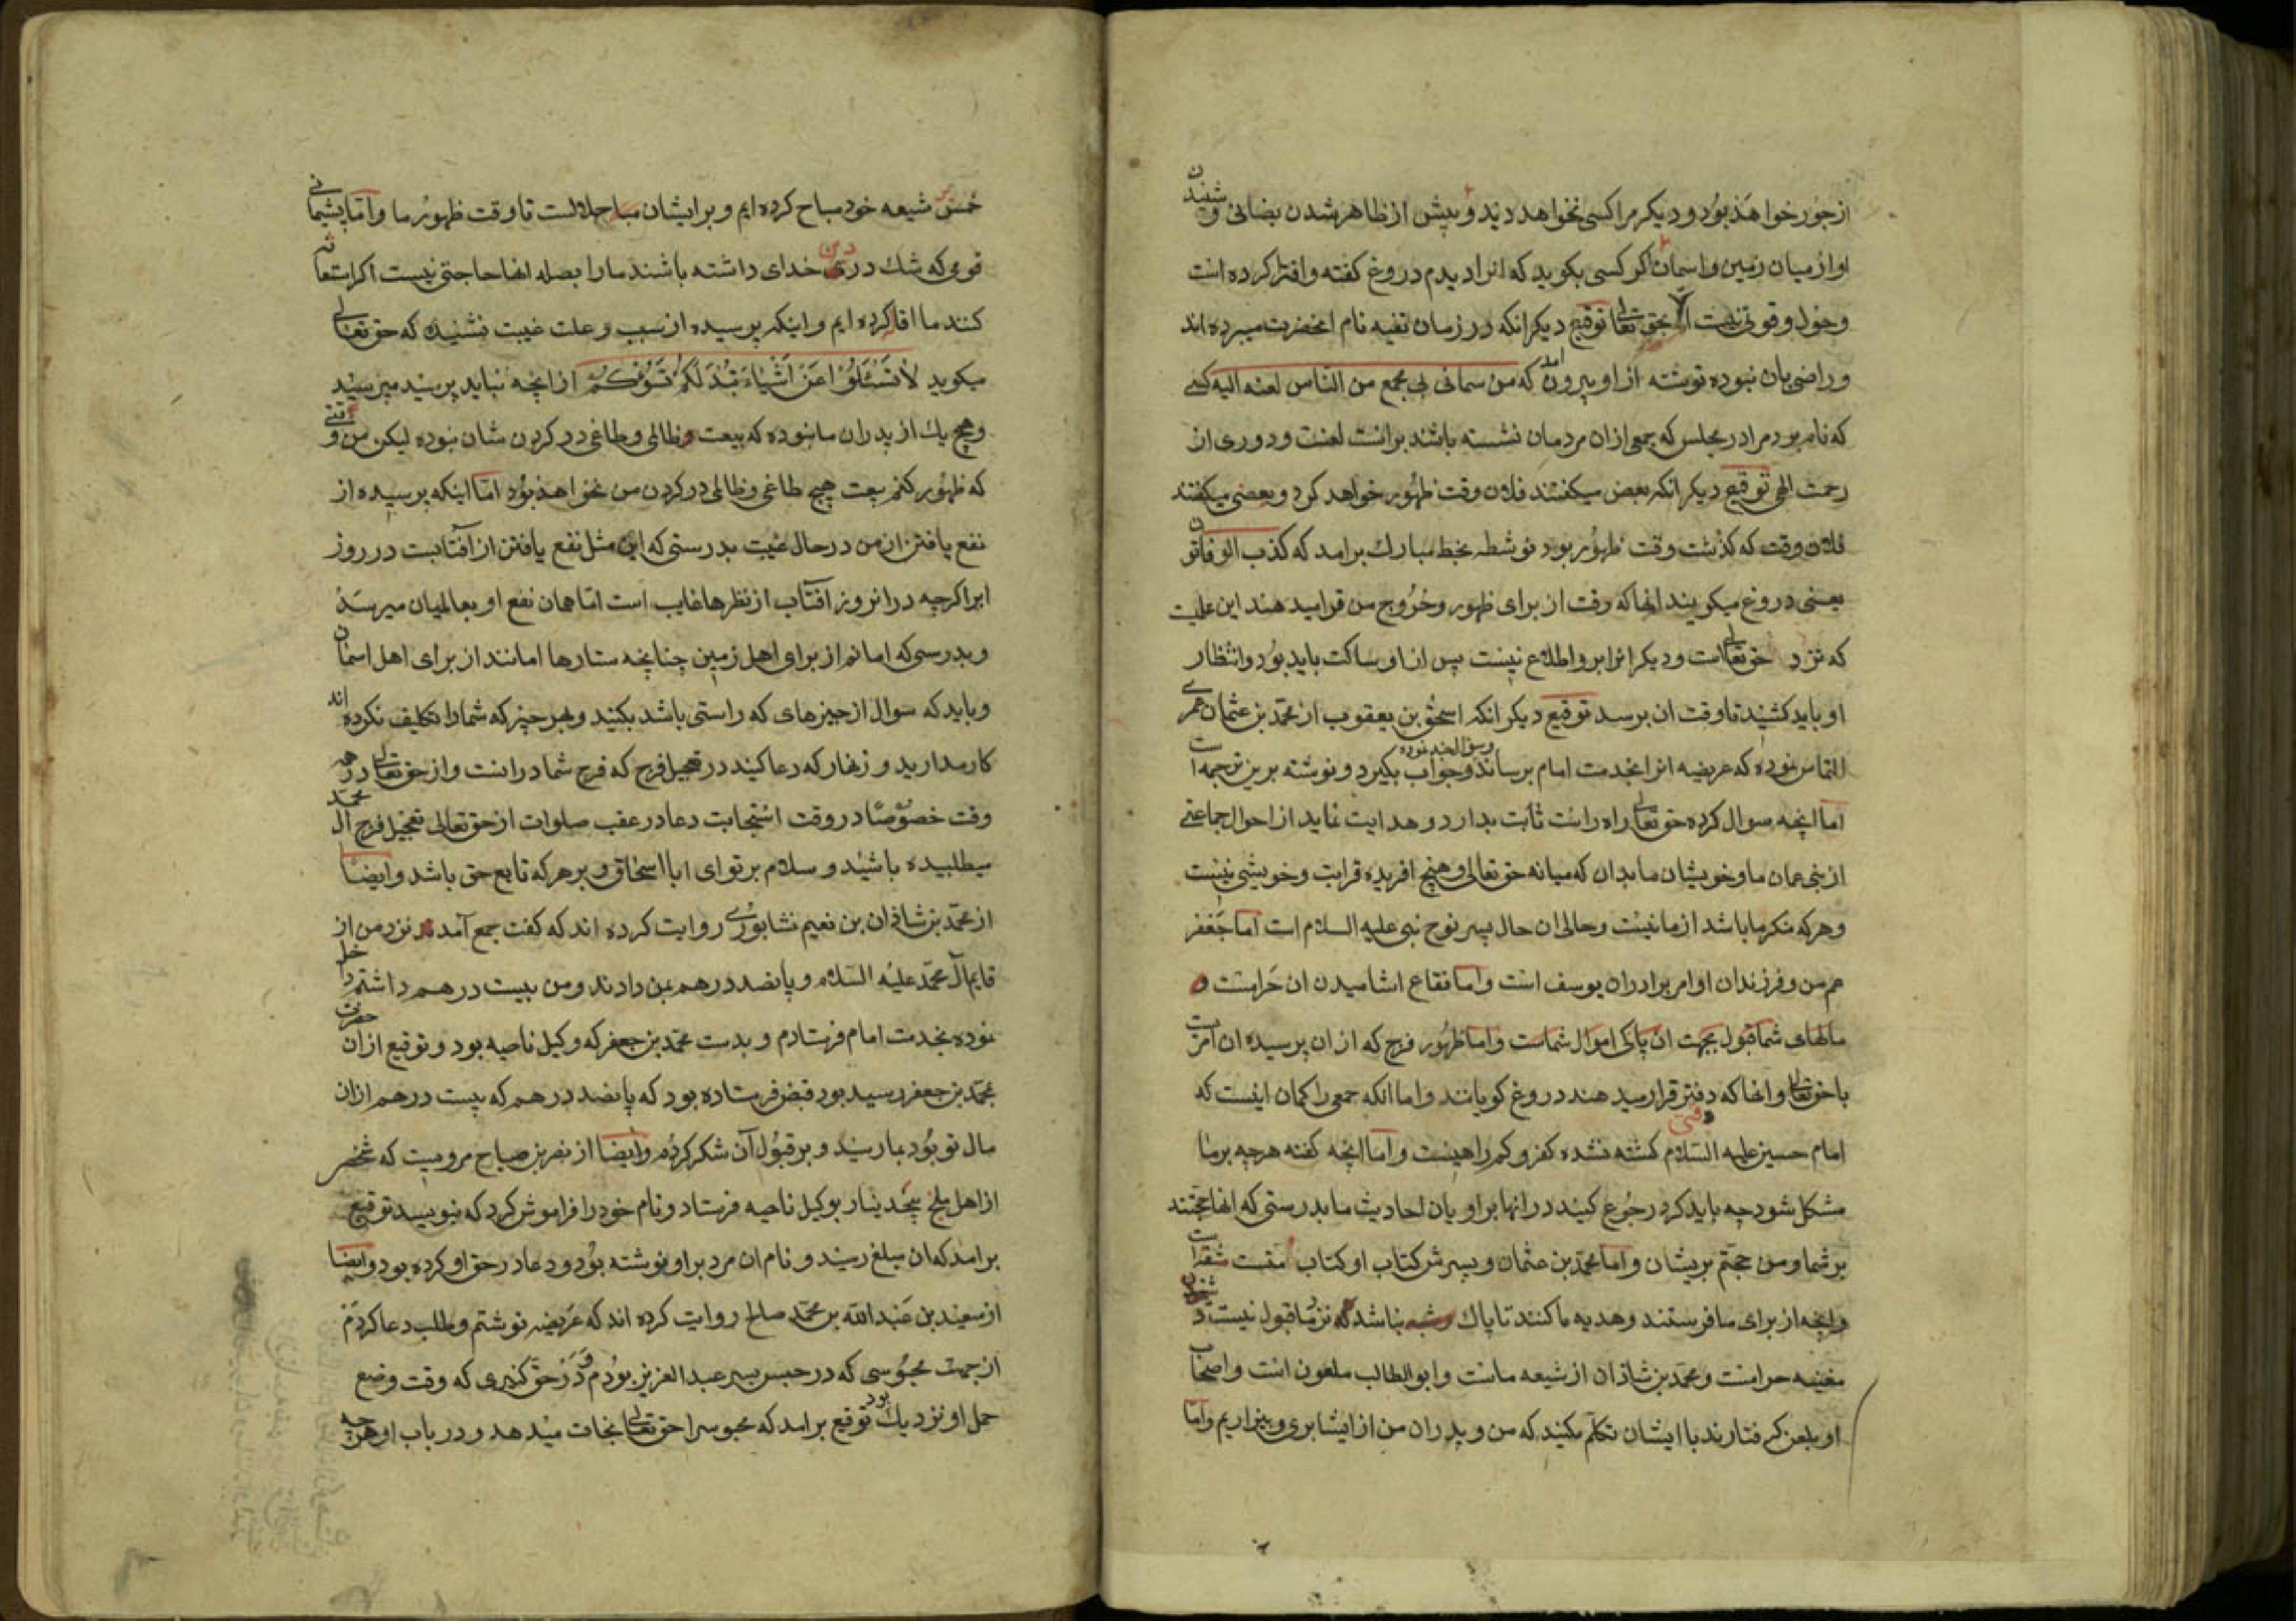 از جور خواهد بود و دیکر مرا کسی نخواهد دید و پیش از ظاهر شدن بضانی و شنیدن
اواز میان زمین و اسمان اکر کسی بکوید که انرا دیدم دروغ کفته و افترا کرده است
و حول و قوتی نیست الا بحق تعالی توقیع دیکر انکه در زمان تقیه نام انحضرت میبرده اند
و راضی بان نبوده نوشته از او بیرون امد که من سمانی فی مجمع من الناس لعنه الیه کسی
که نام برد مرا در مجلس که جمعی از ان مردمان نشسته باشند برانست لعنت و دوری از
رحمت الهی توقیع دیکر انکه بعض میکفتند فلان وقت ظهور خواهد کرد و بعضی میکفتند
فلان وقت که کذشت وقت ظهور بود نوشطه بخط مبارک برامد که کذب الوقاتون
یعنی دروغ میکویند انها که وقت از برای ظهور و خروج من قرامیدهند این علمیست
که نزد حق تعالی است و دیکر انرا برو اطلاع نیست پس از او ساکت باید بود و انتظار
او باید کشید تا وقت ان برسد توقیع دیکر انکه اسحق بن یعقوب از محمد بن عثمان عمری
التماس نموده که عریضه انرا بخدمت امام برساند و جواب بکیرد و نوشته برین ترجمه است
اما انچه سوال کرده حق تعالی راه راست ثابت بدارد و هدایت نماید از احوال جماعتی
از بنی عمان ما و خویشان ما بدان که میانه حق تعالی و هیچ افریده قرابت و خویشی نیست
و هر که منکر ما باشد از ما نیست و حال ان حال پسر نوح نبی علیه السلام است اما جعفر
عم من و فرزندان او امر برادران یوسف است و اما فقاع اشامیدن ان حرامست و
مالهای شما قبول بجهت ان پاکی اموال شماست و اما ظهور فرج که از ان پرسیده ان امریست
با حق تعالی و انها که وقتی دفتر قرار میدهند دروغ کویانند و اما انکه جمعی را کمان اینست که
امام حسین علیه السلام کشته نشده کفر و کمراهیست و اما انچه کفته هرچه بر ما
مشکل شود چه باید کرد رجوع کنید در انها براویان احادیث ما بدرستی که انها حجتند
بر شما و من حجتم بریشان و اما محمد بن عثمان و پسرش کتاب او کتاب منست ثقه است
و انچه از برای ما فرستند و هدیه ما کنند تا پاک نباشد که نزد ما قبول نیست و
مغنیه حرامست و محمد بن شاذان از شیعه ماست و ابوالطالب ملعون است و اصحاب
او بلعن کرفتارند با ایشان تکلم مکنید که من و پدران من از ایشا بری و بیزاریم و اما
خمس شیعه خود مباح کرده ایم و بر ایشان مباح حلالست تا وقت ظهور ما و اما پشیمانی
قومی که شک در دین خدای داشته باشند ما را بصله انها حاجتی نیست اکر استعانه
کنند ما اقا کرده ایم و اینکه پرسیده از سبب و علت غیبت نشنیده که حق تعالی
میکوید لا تسئلوا عن اشیاء تبد لکم تسؤکم از انچه نباید پرسید میپرسید
و هیچ یک از پدران ما نبوده که بیعت ظالمی و طاغی در کردن شان نبوده لیکن من وقتی
که ظهور کنم بیعت هیچ طاغی و ظالمی در کردن من نخواهد بود اما اینکه پرسیده از
نفع یافتن از من در حال غیبت بدرستی که این مثل نفع یافتن از آفتابست در روز
ابر اکرچه در انروز افتاب از نظرها غایب است اما همان نفع او بعالمیان میرسد
و بدرستی که امانم از برای اهل زمین چنانچه ستارها امانند از برای اهل اسمان
و باید که سوال از چیزهای که راستی باشد بکنید و بهر چیز که شما را تکلیف نکرده اند
کار مدارید و زنهار که دعا کنید در تعجیل فرج که فرج شما در انست و از حق تعالی در همه
وقت خصوصا در وقت استجابت دعا در عقب صلوات از حق تعالی تعجیل فرج ال محمد
میطلبیده باشید و سلام بر تو ای ابا اسحاق و بر هر که تابع حق باشد و ایضا
از محمد بن شاذان بن نعیم نشابوری روایت کرده اند که کفت جمع آمد نزد من از
قایم آل محمد علیه السلام و پانصد درهم بمن دادند و من بیست درهم داشتم داخل
نموده بخدمت امام فرستادم و بدست محمد بن جعفر که وکیل ناحیه بود و توقیع از ان حضرت
بمحمد بن جعفر رسید بود قبض فرستاده بود که پانصد درهم که بیست درهم ازان
مال تو بود بما رسید و بر قبول آن شکر کردم و ایضا از نفر بن صباح مرویست که شخصی
از اهل بلخ پنجدینار بوکیل ناحیه فرستاد و نام خود را فراموش کرد که بنویسد توقیع
برامد که ان مبلغ رسید و نام ان مرد براو نوشته بود و دعا در حق او کرده بود و ایضا
از سعید بن عبد الله بن محمد صالح روایت کرده اند که عریضه نوشتم و طلب دعا کردم
از جهت محبوسی که در حبس پسر عبد العزیز بودم و در حق کنیزی که وقت وضع
حمل او نزدیک بود توقیع برامد که محبوسرا حق تعالی نجات میدهد و در باب او هرچه